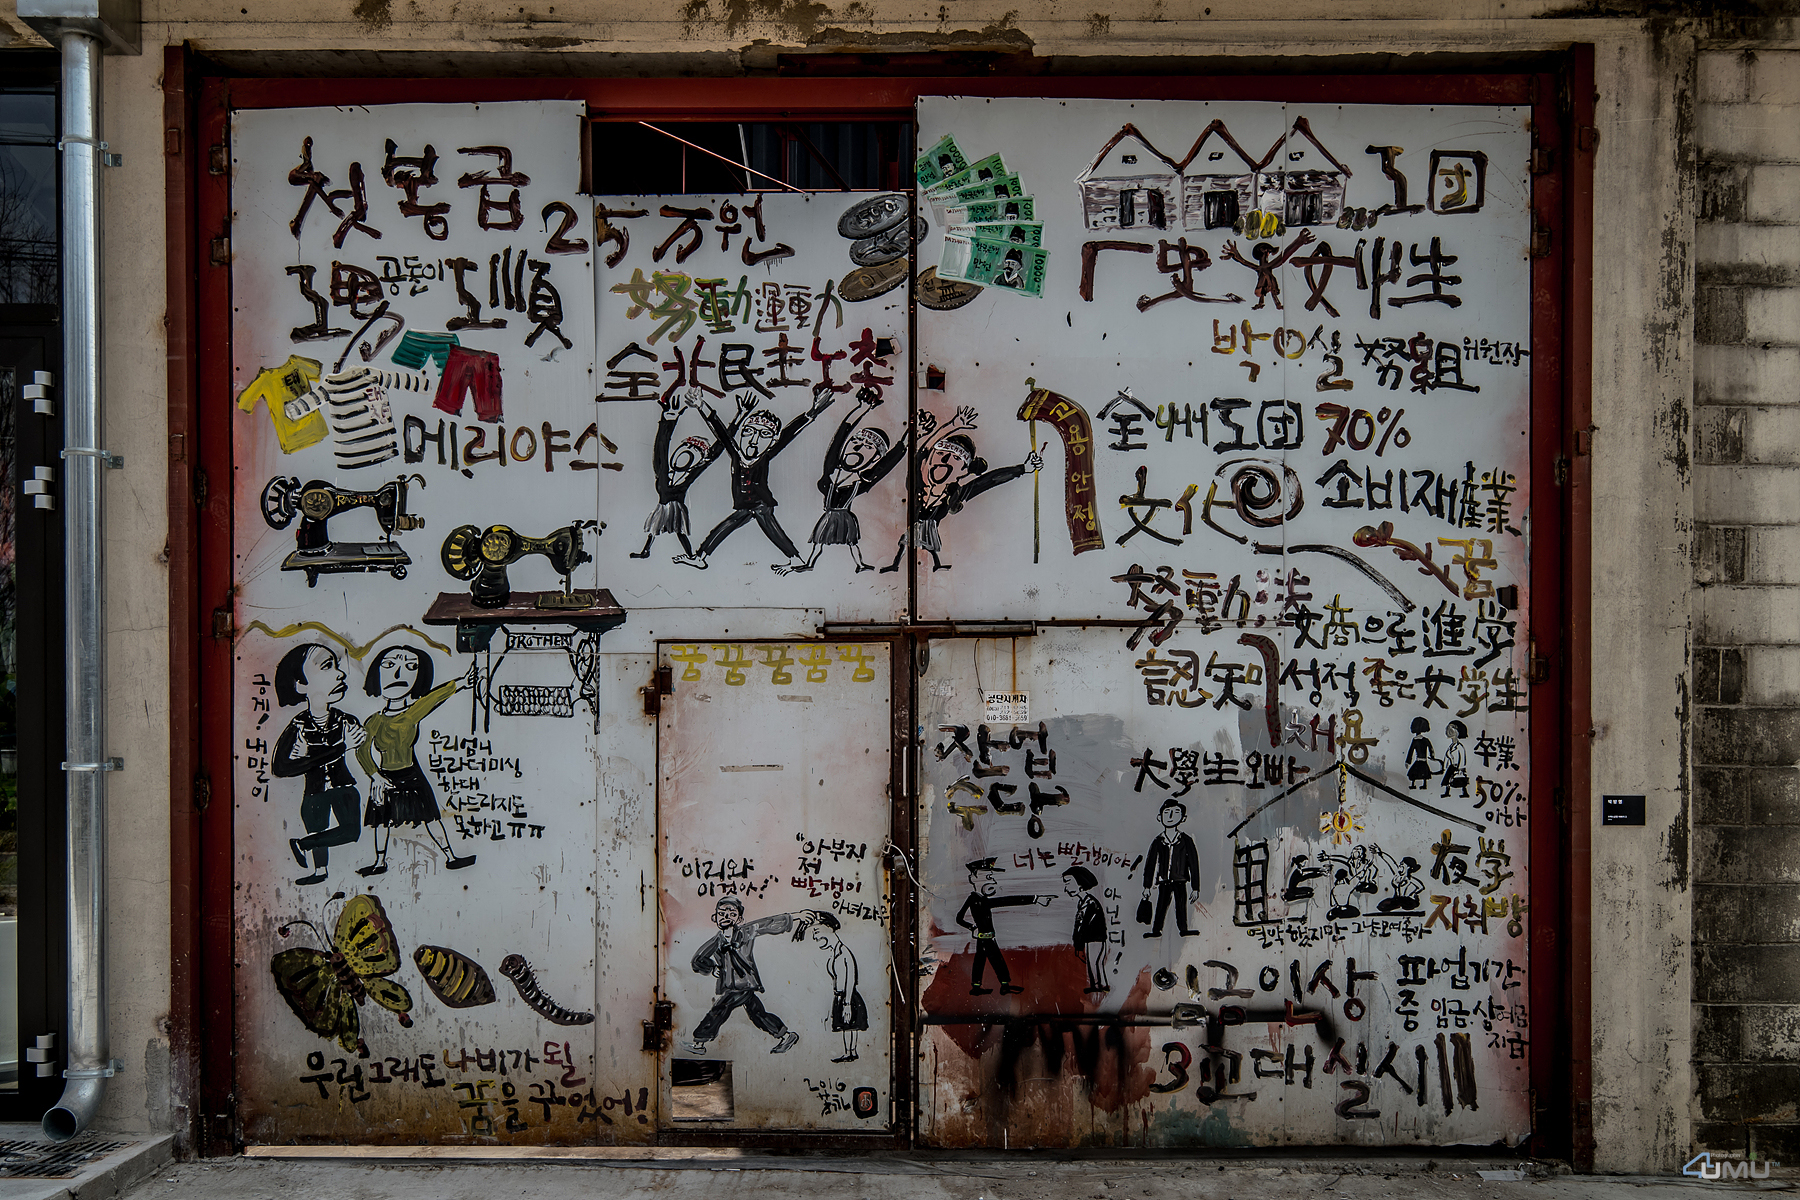 첫봉급
25万원
工男 공돌이 工順
메리야스
RASTER
BROTHER
긍게! 내 말이
우리 언니
브라더미싱
한대
사드리지도
못하고 ㅠㅠ
우린 그래도 나비가 될
꿈을 꾸었어!
努動運動
全北民主노총
고용안정
꿈꿈꿈꿈꿈
"이리와
이것아!"
"아부지
저
빨갱이
아녀라우
2016
500
10000
만원
工団
女性
박 실 努組 위원장
全州工団 70%
文化
소비재産業
꿈
努動法
認知
女商으로進学
성적 좋은女学生
채용
잔업
수당
大學生오빠
卒業
50%
이하
너는 빨갱이야!
아닌디!
夜学
자취방
열악했지만 그냥 모여 좋아
임금인상
파업기간
중 임금.상여금
지급
3교대 실시!!!
4UMU